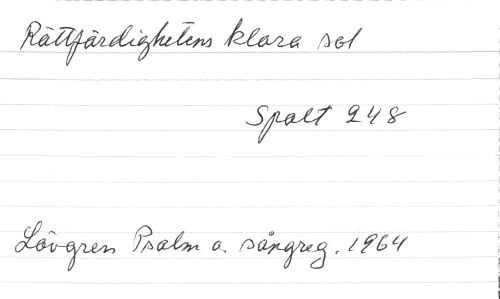 Rättfärdighetens klara sol
Spalt 248
Lövgren Psalm o. sångreg. 1964